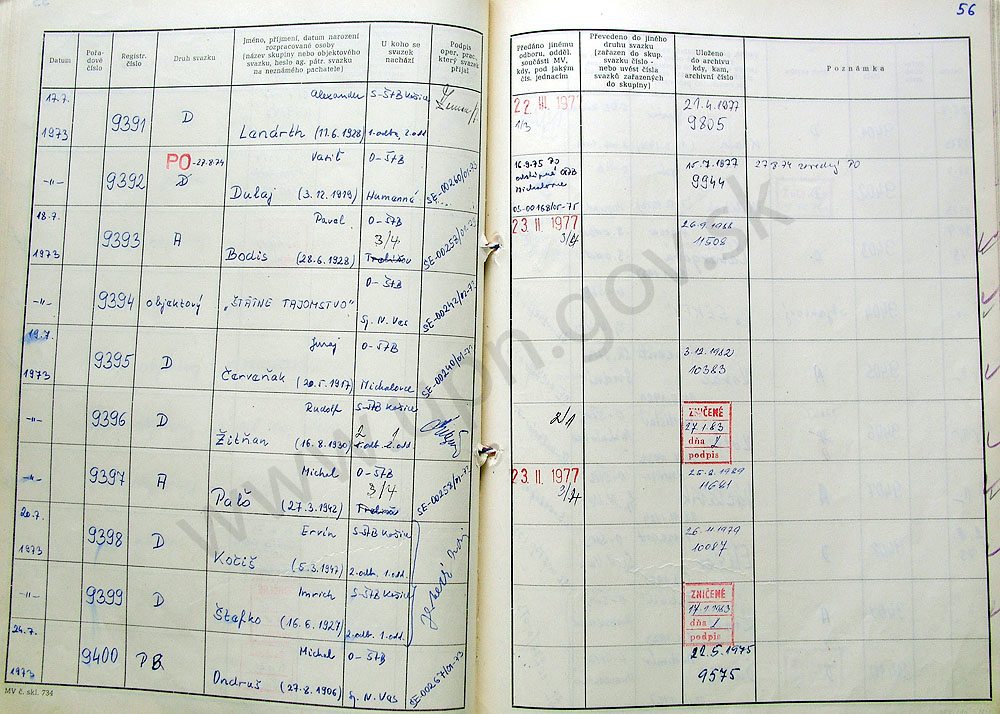 56
Datum
Pořadové číslo
Registr. číslo
Druh svazku
Jméno, příjmení, datum narození rozpracované osoby (název skupiny nebo objektového svazku, heslo ag. pátr. svazku na neznámého pachatele)
U koho se svazek nachází
Podpis oper. prac., který svazek přijal
Předáno jinému odboru, odděl. součásti MV, kdy, pod jakým čís. jednacím
Převedeno do jiného druhu svazku (zařazen do skup. svazku číslo - nebo uvést čísla svazků zařazených do skupiny)
Uloženo do archivu kdy, kam, archivní číslo
Poznámka
17.7. 1973
9391
D
Alexander Landrth (11.6.1928)
S-ŠtB Košice 1.odb., 2.odd.
22. III. 1977
1/3
21.4.1977
9805
-"-
9392
PO -27.8.74
D
Dulaj (3.12.1919)
O-ŠtB Humenné
SE-00260/01-73
16.9.75
Michalovce
03-00168/05-75
15.7.1977
9944
27.8.74 PO
18.7. 1973
9393
A
Pavel Bodis (28.6.1928)
O-ŠtB
3/4
SE-00258/01-73
23. II. 1977
3/4
26.9.1988
11508
-"-
9394
objektový
„ŠTÁTNE TAJOMSTVO"
O-ŠtB
Sp. N. Ves
SE-00242/01-73
19.7. 1973
9395
D
Juraj Červeňák (20.5.1917)
O-ŠtB Michalovce
SE-00240/01-73
3.12.1982
10383
-"-
9396
D
Rudolf Žitňan (16.8.1930)
S-ŠtB Košice
2 1
1.odb. 2.odd.
2/1
ZNIČENÉ
27.1.83
dňa
podpis
-"-
9397
A
Michal Palš (27.3.1942)
O-ŠtB
3/4
SE-00259/01-73
23. II. 1977
3/4
1989
11681
20.7. 1973
9398
D
Ervín Kočiš (5.3.1947)
S-ŠtB Košice
2.odb. 1.odd.
26.11.1979
10087
-"-
9399
D
Imrich Štefko (16.6.1927)
S-ŠtB Košice
2.odb. 1.odd.
ZNIČENÉ
17.1.1983
dňa
podpis
24.7. 1973
9400
PB
Michal Ondruš (27.8.1906)
O-ŠtB
Sp. N. Ves
SE-00267/01-73
22.5.1975
9575
MV č. skl. 734
www.upn.gov.sk